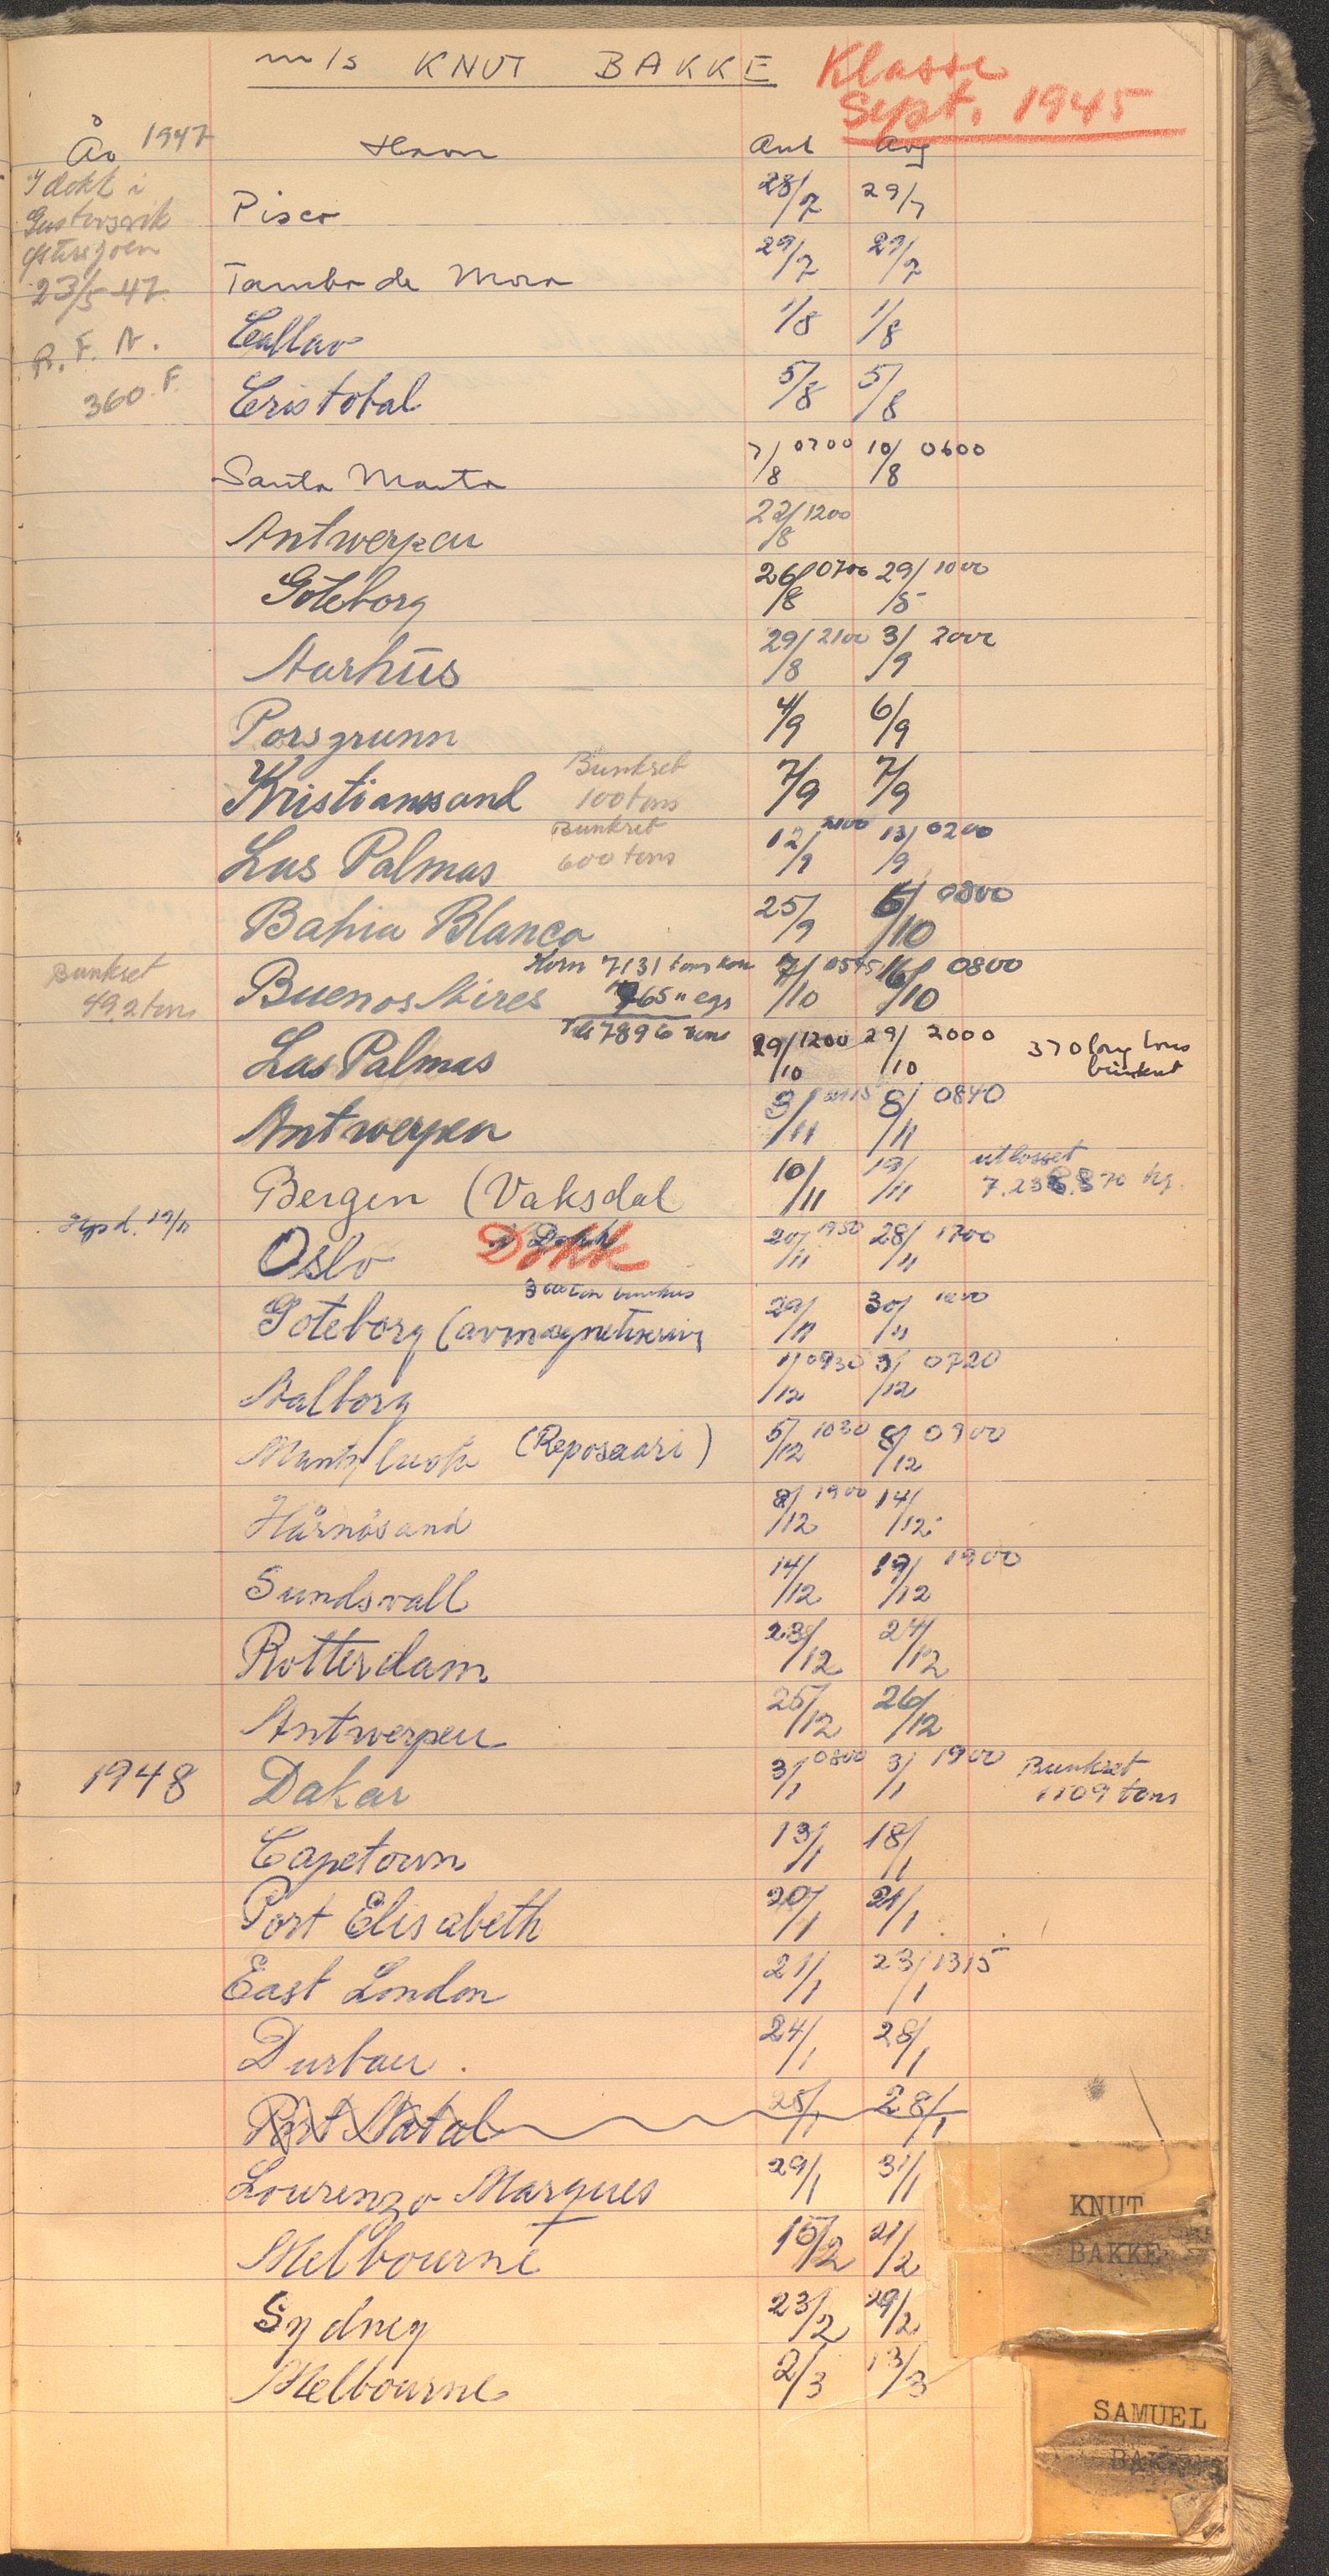 m/s KNUT BAKKE Klasse
Sept. 1945
År 1947 Havn Ank Avg
I dokk i
23/5-47
R. F. N.
360 F.
Pisco 28/7 29/7
Tambo de Mora 29/7 29/7
Callao 1/8 1/8
Cristobal 5/8 5/8
Santa Marta 7/8 0700 10/8 0600
Antwerpen 22/8 1200
Göteborg 26/8 0700 29/8 1000
Aarhus 29/8 2100 3/9 2000
Porsgrunn 4/9 6/9
Kristianssand Bunkret 100 tons 7/9 7/9
Las Palmas Bunkret 600 tons 12/9 2100 13/9 0200
Bahia Blanca 25/9 6/10 0800
Bunkret 49,2 tons Buenos Aires Korn 7131 tons 7/10 0545 16/10 0800
765 " egs
7896 tons
Las Palmas 29/10 1200 29/10 2000 370 long tons bunkret
Antwerpen 3/11 8/11 0840
Bergen (Vaksdal 10/11 19/11 utlosset
19/11 Oslo Dokk 20/11 1950 28/11 1700
300 ton bunkers
Göteborg (avmagnetisering 29/11 30/11
Aalborg 1/12 0930 3/12 0720
Mantyluoto (Reposaari) 5/12 1030 8/12 0900
Härnösand 8/12 1900 14/12
Sundsvall 14/12 19/12 1900
Rotterdam 23/12 24/12
Antwerpen 25/12 26/12
1948 Dakar 3/1 0800 3/1 1900 Bunkret 1109 tons
Capetown 13/1 18/1
Port Elisabeth 20/1 21/1
East London 21/1 23/1 1315
Durban. 24/1 28/1
Port Natal 25/1 28/1
Lourenzo Marques 29/1 31/1
Melbourne 15/2 21/2
Sydney 23/2 29/2
Melbourne 2/3 13/3
KNUT
BAKKE
SAMUEL
BAKKE